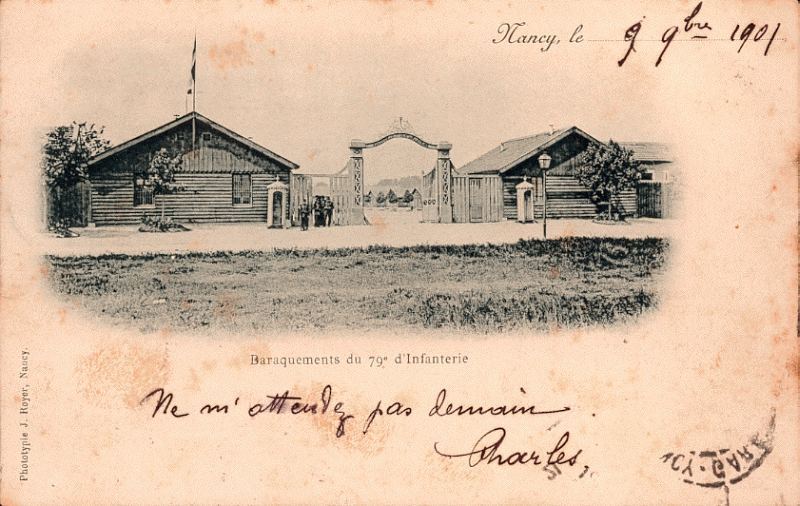 Nancy, le 9 9bre 1901
Baraquements du 79e d'Infanterie
Ne m'attendez pas demain.
Charles,
Phototypie J. Royer, Nancy.
NCY-GARE